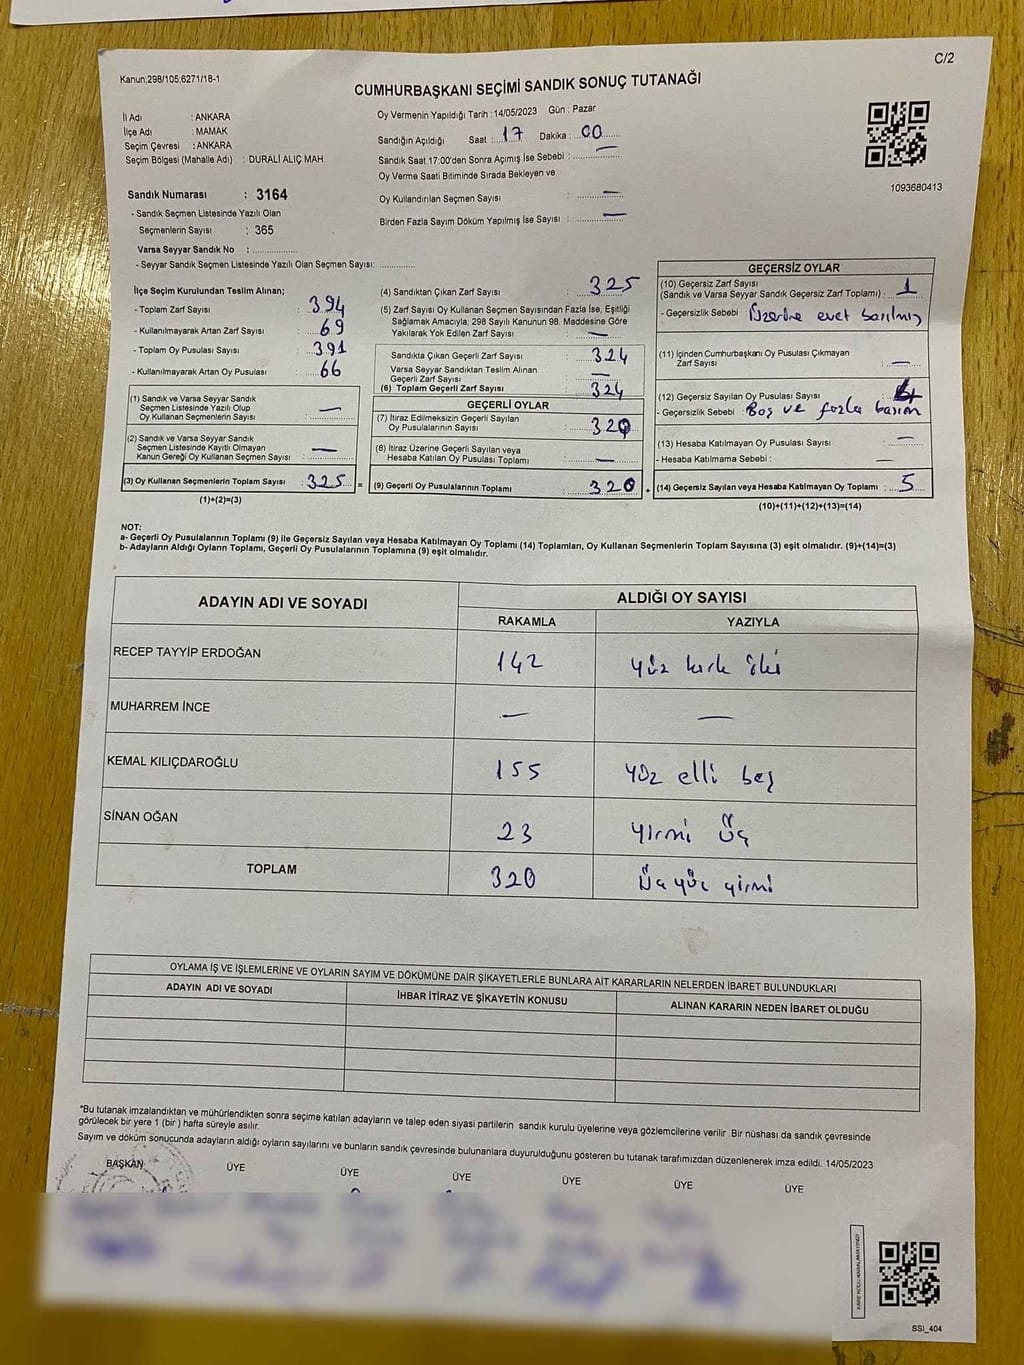 C/2
Kanun;298/105;6271/18-1
CUMHURBAŞKANI SEÇİMİ SANDIK SONUÇ TUTANAĞI
İl Adı : ANKARA
İlçe Adı : MAMAK
Seçim Çevresi : ANKARA
Seçim Bölgesi (Mahalle Adı) : DURALİ ALIÇ MAH.
Oy Vermenin Yapıldığı Tarih : 14/05/2023 Gün : Pazar
Sandığın Açıldığı Saat : 17 Dakika : 00
Sandık Saat 17:00'den Sonra Açımış İse Sebebi : —
Oy Verme Saati Bitiminde Sırada Bekleyen ve
Oy Kullandırılan Seçmen Sayısı : —
Birden Fazla Sayım Döküm Yapılmış İse Sayısı : —
1093680413
Sandık Numarası : 3164
- Sandık Seçmen Listesinde Yazılı Olan
Seçmenlerin Sayısı : 365
Varsa Seyyar Sandık No :
- Seyyar Sandık Seçmen Listesinde Yazılı Olan Seçmen Sayısı:
İlçe Seçim Kurulundan Teslim Alınan;
- Toplam Zarf Sayısı : 394
- Kullanılmayarak Artan Zarf Sayısı : 69
- Toplam Oy Pusulası Sayısı : 391
- Kullanılmayarak Artan Oy Pusulası : 66
(1) Sandık ve Varsa Seyyar Sandık
Seçmen Listesinde Yazılı Olup
Oy Kullanan Seçmenlerin Sayısı : —
(2) Sandık ve Varsa Seyyar Sandık
Seçmen Listesinde Kayıtlı Olmayan
Kanun Gereği Oy Kullanan Seçmen Sayısı : —
(3) Oy Kullanan Seçmenlerin Toplam Sayısı : 325
(1)+(2)=(3)
(4) Sandıktan Çıkan Zarf Sayısı : 325
(5) Zarf Sayısı Oy Kullanan Seçmen Sayısından Fazla İse, Eşitliği
Sağlamak Amacıyla, 298 Sayılı Kanunun 98. Maddesine Göre
Yakılarak Yok Edilen Zarf Sayısı : —
Sandıkta Çıkan Geçerli Zarf Sayısı : 324
Varsa Seyyar Sandıktan Teslim Alınan
Geçerli Zarf Sayısı : —
(6) Toplam Geçerli Zarf Sayısı : 324
GEÇERLİ OYLAR
(7) İtiraz Edilmeksizin Geçerli Sayılan
Oy Pusulalarının Sayısı : 320
(8) İtiraz Üzerine Geçerli Sayılan veya
Hesaba Katılan Oy Pusulası Toplamı : —
= (9) Geçerli Oy Pusulalarının Toplamı : 320
GEÇERSİZ OYLAR
(10) Geçersiz Zarf Sayısı
(Sandık ve Varsa Seyyar Sandık Geçersiz Zarf Toplamı) : 1
- Geçersizlik Sebebi : Üzerine evet basılmış
(11) İçinden Cumhurbaşkanı Oy Pusulası Çıkmayan
Zarf Sayısı : —
(12) Geçersiz Sayılan Oy Pusulası Sayısı : 4
- Geçersizlik Sebebi : Boş ve fazla basım
(13) Hesaba Katılmayan Oy Pusulası Sayısı : —
- Hesaba Katılmama Sebebi : —
+ (14) Geçersiz Sayılan veya Hesaba Katılmayan Oy Toplamı : 5
(10)+(11)+(12)+(13)=(14)
NOT:
a- Geçerli Oy Pusulalarının Toplamı (9) ile Geçersiz Sayılan veya Hesaba Katılmayan Oy Toplamı (14) Toplamları, Oy Kullanan Seçmenlerin Toplam Sayısına (3) eşit olmalıdır. (9)+(14)=(3)
b- Adayların Aldığı Oyların Toplamı, Geçerli Oy Pusulalarının Toplamına (9) eşit olmalıdır.
ADAYIN ADI VE SOYADI
ALDIĞI OY SAYISI
RAKAMLA YAZIYLA
RECEP TAYYİP ERDOĞAN 142 yüz kırk iki
MUHARREM İNCE — —
KEMAL KILIÇDAROĞLU 155 yüz elli beş
SİNAN OĞAN 23 yirmi üç
TOPLAM 320 Üç yüz yirmi
OYLAMA İŞ VE İŞLEMLERİNE VE OYLARIN SAYIM VE DÖKÜMÜNE DAİR ŞİKAYETLERLE BUNLARA AİT KARARLARIN NELERDEN İBARET BULUNDUKLARI
ADAYIN ADI VE SOYADI İHBAR İTİRAZ VE ŞİKAYETİN KONUSU ALINAN KARARIN NEDEN İBARET OLDUĞU
*Bu tutanak imzalandıktan ve mühürlendikten sonra seçime katılan adayların ve talep eden siyasi partilerin sandık kurulu üyelerine veya gözlemcilerine verilir .Bir nüshası da sandık çevresinde
görülecek bir yere 1 (bir ) hafta süreyle asılır.
Sayım ve döküm sonucunda adayların aldığı oyların sayılarını ve bunların sandık çevresinde bulunanlara duyurulduğunu gösteren bu tutanak tarafımızdan düzenlenerek imza edildi. 14/05/2023
BAŞKAN ÜYE ÜYE ÜYE ÜYE ÜYE ÜYE
KARE KODU KARALAMAYINIZ!
SSI_404